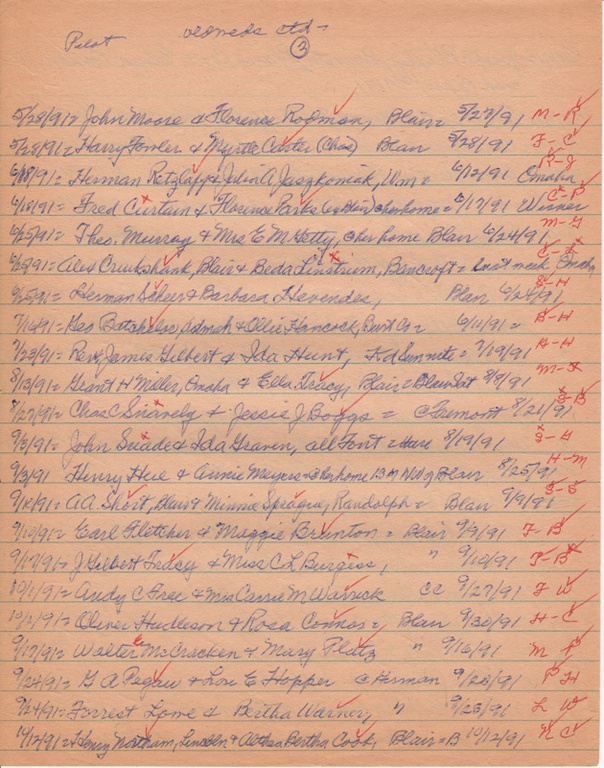 Pilot Weddings ctd -
3
5/28/91 = John Moore & Florence Rodman, Blair = 5/27/91 M-R
5/28/91 = Harry Fowler & Myrtle Carter (Chas) Blair 5/28/91 F-C
6/18/91 = Herman Retzlaff & Julia A Juszkoniak, Wm = 6/12/91 Omaha R-J
6/18/91 = Fred Curtain & Florence Parks @ her home = 6/17/91 Wisner C-P
6/25/91 = Theo. Murray & Mrs E M Getty, @ her home Blair 6/24/91 M-G
6/25/91 = Alex Cruikshank, Blair & Beda Linstrum, Bancroft = last week Omaha C-L
6/25/91 = Herman Scheer & Barbara Hevendes, Blair 6/24/91 S-H
7/16/91 = Geo Batcheler, & Ollie Hancock, Burt Co = 6/11/91 = B-H
7/23/91 = Rev James Gilbert & Ida Hunt, = 7/19/91 G-H
8/13/91 = Grant H Miller, Omaha & Ella Tracy, Blair = Blair Sat 8/8/91 M-T
8/27/91 = Chas C Snavely & Jessie J Boggs = Fremont 8/21/91 S-B
9/3/91 = John Suade & Ida Graven, all Font = 8/19/91 S-G
9/3/91 Henry Hue & Annie Meyers = @ her home 13 M NW of Blair 8/25/91 H-M
9/10/91 = A.A. Short, Blair & Minnie Sprague, Randolph = Blair 9/9/91 S-S
9/10/91 = Earl Fletcher & Maggie Brunton = Blair 9/9/91 F-B
9/17/91 = J Gilbert Tracy & Miss C L Burgiss, " 9/10/91 T-B
10/1/91 = Andy C Free & Miss Carrie M Warrick CC 9/27/91 F W
10/1/91 = Oliver Hudleson & Rosa Connor = Blair 9/30/91 H-C
9/17/91 = Walter McCracken & Mary Plutz " 9/16/91 M P
9/24/91 = G A Pegau & Lou E Hopper @ Herman 9/20/91 P H
9/24/91 = Forrest Lowe & Bertha Warner, " 9/23/91 L W
10/12/91 = Henry Northam, Lincoln & Bertha Cook, Blair = B 10/12/91 N C